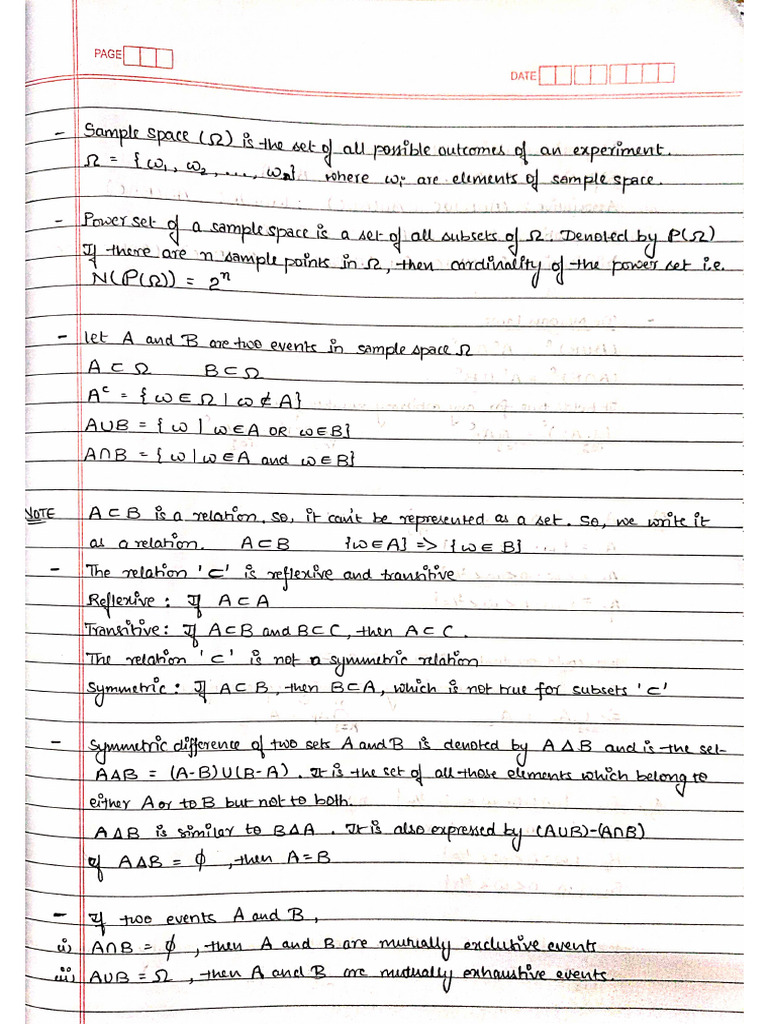 PAGE
DATE
- Sample space (Ω) is the set of all possible outcomes of an experiment.
Ω = {ω₁, ω₂, ..., ωₙ} where ωᵢ are elements of sample space.
- Power set of a sample space is a set of all subsets of Ω. Denoted by P(Ω)
If there are n sample points in Ω, then cardinality of the power set i.e.
N(P(Ω)) = 2ⁿ
- let A and B are two events in sample space Ω
A ⊂ Ω B ⊂ Ω
Aᶜ = {ω ∈ Ω | ω ∉ A}
A∪B = {ω | ω∈A OR ω∈B}
A∩B = {ω | ω∈A and ω∈B}
NOTE A⊂B is a relation. So, it can't be represented as a set. So, we write it
as a relation. A⊂B {ω∈A} => {ω∈B}
- The relation '⊂' is reflexive and transitive
Reflexive: If A⊂A
Transitive: If A⊂B and B⊂C, then A⊂C.
The relation '⊂' is not a symmetric relation
Symmetric: If A⊂B, then B⊂A, which is not true for subsets '⊂'
- Symmetric difference of two sets A and B is denoted by A Δ B and is the set
AΔB = (A-B)∪(B-A). It is the set of all those elements which belong to
either A or to B but not to both.
AΔB is similar to BΔA. It is also expressed by (A∪B)-(A∩B)
If AΔB = ϕ, then A=B
- If two events A and B,
i) A∩B = ϕ, then A and B are mutually exclutive events
ii) A∪B = Ω, then A and B are mutually exhaustive events.